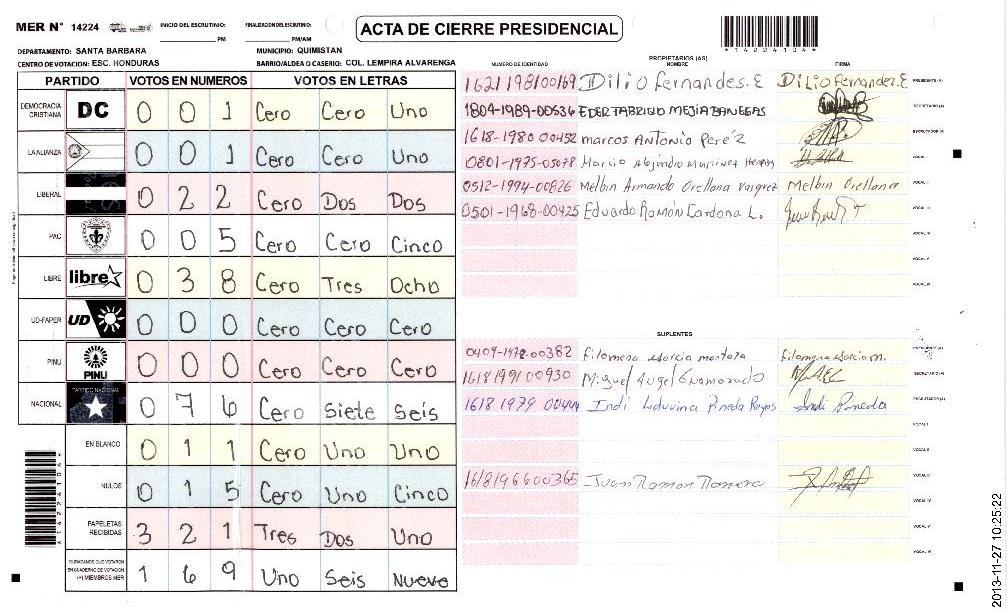 MER N° 14224
INICIO DEL ESCRUTINIO: PM
FINALIZACION DEL ESCRUTINIO: PM/AM
ACTA DE CIERRE PRESIDENCIAL
*14224104*
DEPARTAMENTO: SANTA BARBARA
MUNICIPIO: QUIMISTAN
CENTRO DE VOTACION: ESC. HONDURAS
BARRIO/ALDEA O CASERIO: COL. LEMPIRA ALVARENGA
PARTIDO VOTOS EN NUMEROS VOTOS EN LETRAS
DEMOCRACIA CRISTIANA DC 0 0 1 Cero Cero Uno
LA ALIANZA 0 0 1 Cero Cero Uno
LIBERAL 0 2 2 Cero Dos Dos
PAC 0 0 5 Cero Cero Cinco
LIBRE libre 0 3 8 Cero Tres Ocho
UD-FAPER UD 0 0 0 Cero Cero Cero
PINU PINU 0 0 0 Cero Cero Cero
NACIONAL PARTIDO NACIONAL 0 7 6 Cero Siete Seis
EN BLANCO 0 1 1 Cero Uno Uno
NULOS 0 1 5 Cero Uno Cinco
PAPELETAS RECIBIDAS 3 2 1 Tres Dos Uno
CIUDADANOS QUE VOTARON EN CUADERNO DE VOTACION (+) MIEMBROS MER 1 6 9 Uno Seis Nueve
PROPIETARIOS (AS)
NUMERO DE IDENTIDAD NOMBRE FIRMA
1621198100169 Dilio Fernandes. E Dilio Fernandez. E PRESIDENTE (A)
1804-1989-00536 EDER FABRICIO MEJIA BANEGAS SECRETARIO (A)
1618-1980 00452 marcos Antonio Peréz ESCRUTADOR (A)
0801-1975-05078 Marcio Alejandro Martinez VOCAL I
0512-1994-00826 Melbin Armando Orellana Vasquez Melbin Orellana VOCAL II
0501-1968-00425 Eduardo Ramón Cardona L. VOCAL III
VOCAL IV
VOCAL V
VOCAL VI
SUPLENTES
0409-1972-00382 filomena Garcia montoza filomena Garcia m. PRESIDENTE (A)
1618199100930 Miguel Angel Enamorado SECRETARIO (A)
1618 1979 Indi Liduvina Pineda Reyes Indi Pineda ESCRUTADOR (A)
VOCAL I
VOCAL II
1618196600365 Juan Ramon Romero VOCAL III
VOCAL IV
VOCAL V
VOCAL VI
2013-11-27 10:25:22